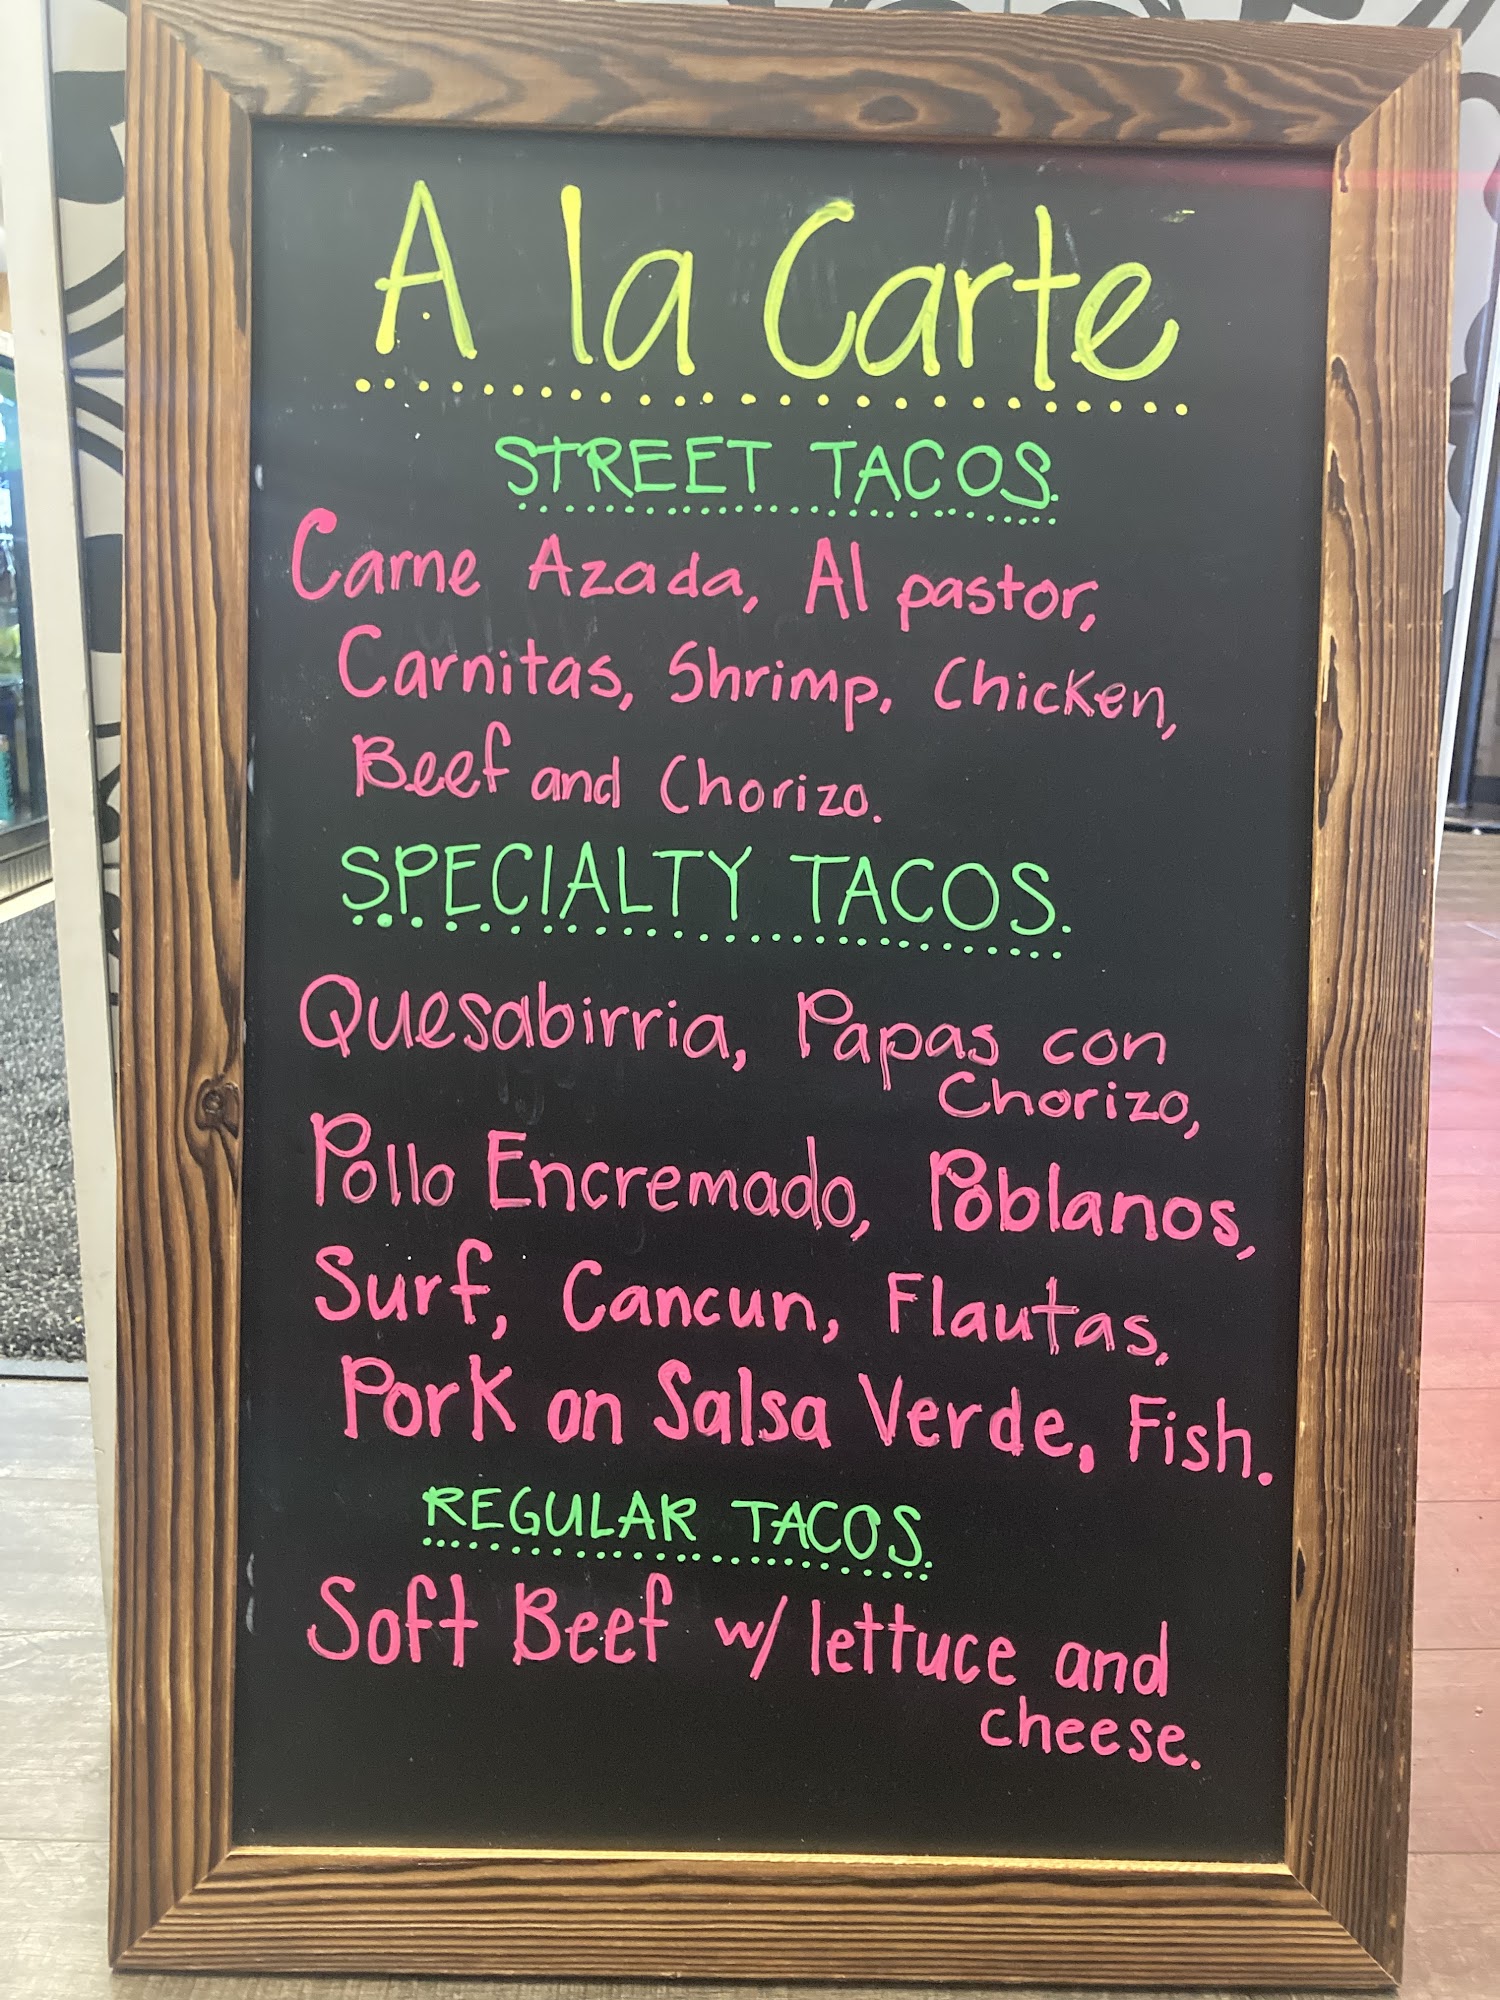 A la Carte
STREET TACOS.
Carne Azada, Al pastor,
Carnitas, Shrimp, Chicken,
Beef and Chorizo.
SPECIALTY TACOS.
Quesabirria, Papas con
Chorizo,
Pollo Encremado, Poblanos,
Surf, Cancun, Flautas,
Pork on Salsa Verde, Fish.
REGULAR TACOS.
Soft Beef w/ lettuce and
cheese.